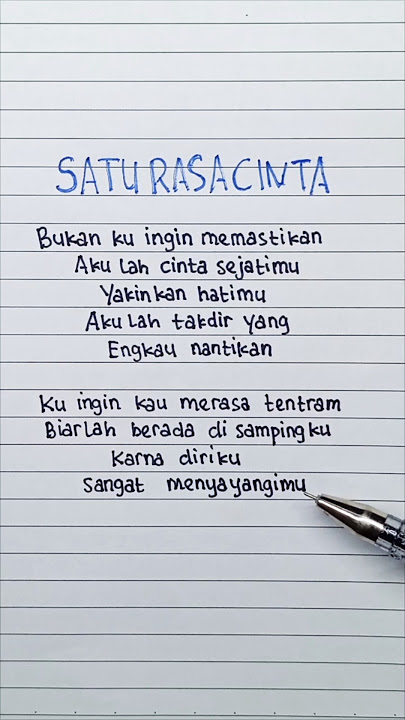 SATU RASA CINTA
Bukan ku ingin memastikan
Aku lah cinta sejatimu
Yakinkan hatimu
Aku lah takdir yang
Engkau nantikan
Ku ingin kau merasa tentram
Biarlah berada di sampingku
Karna diriku
Sangat menyayangimu